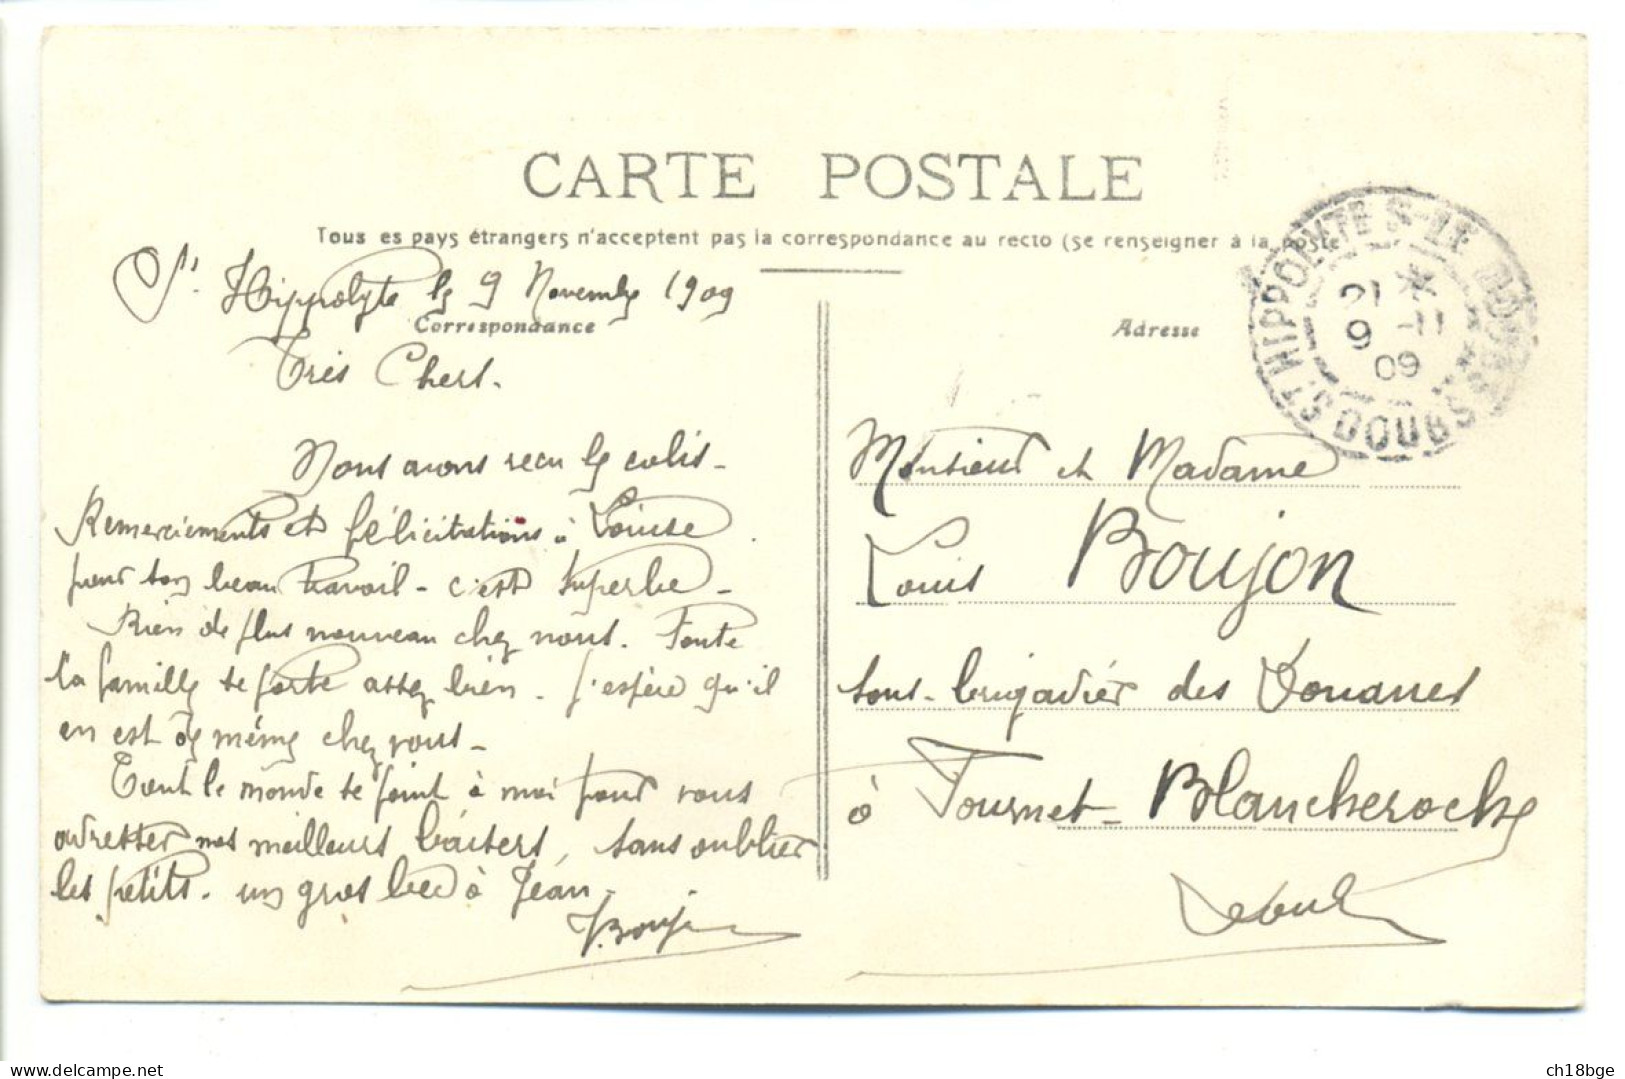 CARTE POSTALE
Tous es pays étrangers n'acceptent pas la correspondance au recto (se renseigner à la poste
St Hippolyte le 9 Novembre 1909
Correspondance
Très Chers.
Nous avons reçu le colis -
Remerciements et félicitations à Louise
pour son beau travail - c'est superbe -
Rien de plus nouveau chez nous. Toute
la famille se porte assez bien. J'espère qu'il
en est de même chez vous -
Tout le monde se joint à moi pour vous
adresser nos meilleurs baisers, sans oublier
les petits. un gros bec à Jean
Bouj
Adresse
Monsieur et Madame
Louis Boujon
sous-brigadier des Douanes
à Fournet-Blancheroche
Doubs
ST HIPPOLYTE S-LE DOUBS
DOUBS
21 *
9 -11
09
delcampe.net
ch18bge